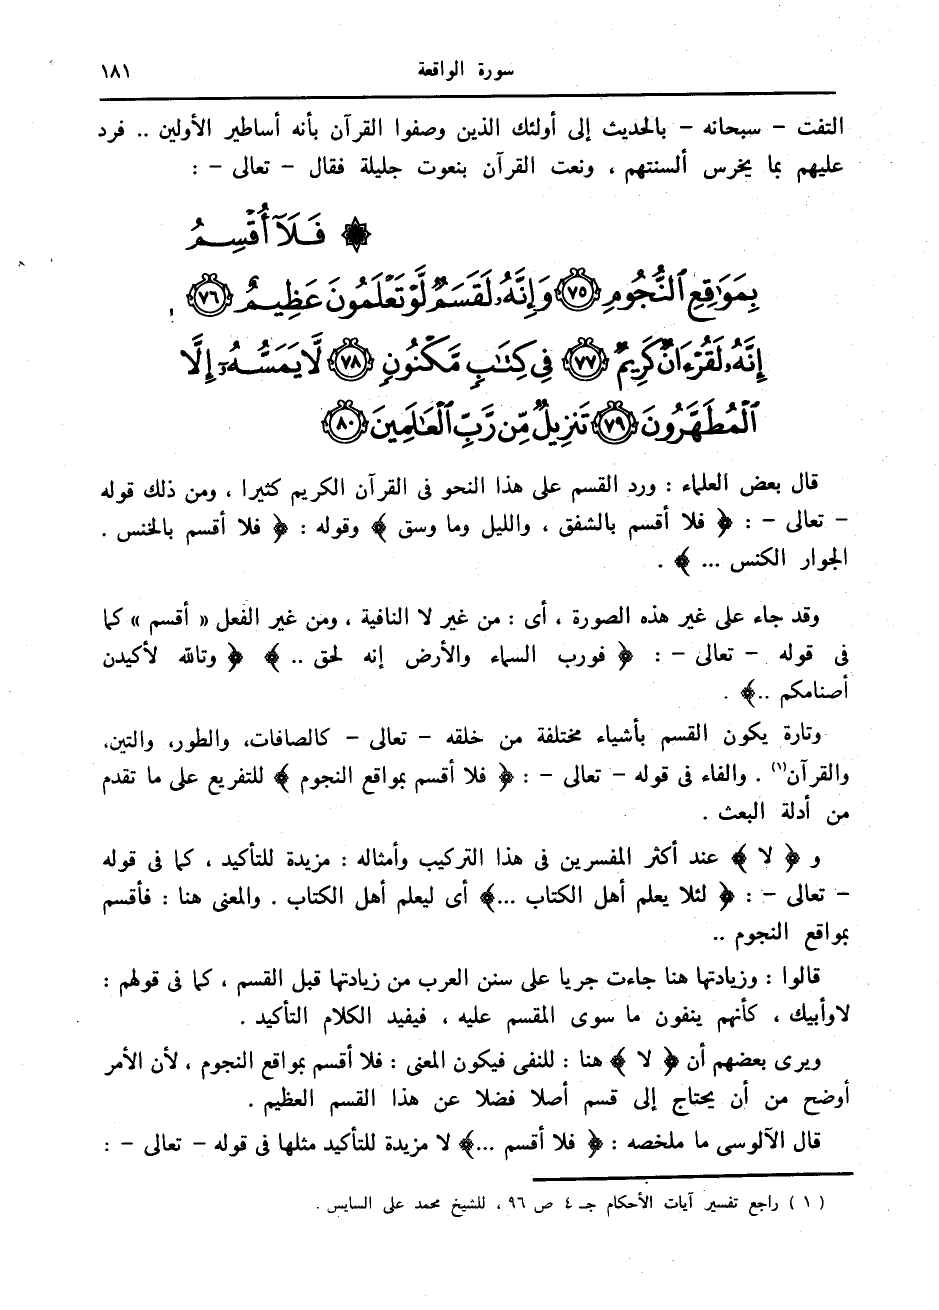 سورة الواقعة ١٨١
التفت – سبحانه – بالحديث إلى أولئك الذين وصفوا القرآن بأنه أساطير الأولين .. فرد
عليهم بما يخرس ألسنتهم ، ونعت القرآن بنعوت جليلة فقال – تعالى – :
۞ فَلَآ أُقْسِمُ
بِمَوَٰقِعِ ٱلنُّجُومِ ﴿٧٥﴾ وَإِنَّهُۥ لَقَسَمٌ لَّوْ تَعْلَمُونَ عَظِيمٌ ﴿٧٦﴾
إِنَّهُۥ لَقُرْءَانٌ كَرِيمٌ ﴿٧٧﴾ فِى كِتَٰبٍ مَّكْنُونٍ ﴿٧٨﴾ لَّا يَمَسُّهُۥٓ إِلَّا
ٱلْمُطَهَّرُونَ ﴿٧٩﴾ تَنزِيلٌ مِّن رَّبِّ ٱلْعَٰلَمِينَ ﴿٨٠﴾
قال بعض العلماء : ورد القسم على هذا النحو فى القرآن الكريم كثيرا ، ومن ذلك قوله
– تعالى – : ﴿ فلا أقسم بالشفق ، والليل وما وسق ﴾ وقوله : ﴿ فلا أقسم بالخنس .
الجوار الكنس ... ﴾ .
وقد جاء على غير هذه الصورة ، أى : من غير لا النافية ، ومن غير الفعل « أقسم » كما
فى قوله – تعالى – : ﴿ فورب السماء والأرض إنه لحق .. ﴾ ﴿ وتالله لأكيدن
أصنامكم ..﴾ .
وتارة يكون القسم بأشياء مختلفة من خلقه – تعالى – كالصافات، والطور، والتين،
والقرآن(١) . والفاء فى قوله – تعالى – : ﴿ فلا أقسم بمواقع النجوم ﴾ للتفريع على ما تقدم
من أدلة البعث .
و ﴿ لا ﴾ عند أكثر المفسرين فى هذا التركيب وأمثاله : مزيدة للتأكيد ، كما فى قوله
– تعالى – : ﴿ لئلا يعلم أهل الكتاب ...﴾ أى ليعلم أهل الكتاب . والمعنى هنا : فأقسم
بمواقع النجوم ..
قالوا : وزيادتها هنا جاءت جريا على سنن العرب من زيادتها قبل القسم ، كما فى قولهم :
لاوأبيك ، كأنهم ينفون ما سوى المقسم عليه ، فيفيد الكلام التأكيد .
ويرى بعضهم أن ﴿ لا ﴾ هنا : للنفى فيكون المعنى : فلا أقسم بمواقع النجوم ، لأن الأمر
أوضح من أن يحتاج إلى قسم أصلا فضلا عن هذا القسم العظيم .
قال الآلوسى ما ملخصه : ﴿ فلا أقسم ...﴾ لا مزيدة للتأكيد مثلها فى قوله – تعالى – :
( ١ ) راجع تفسير آيات الأحكام جـ ٤ ص ٩٦ ، للشيخ محمد على السايس .